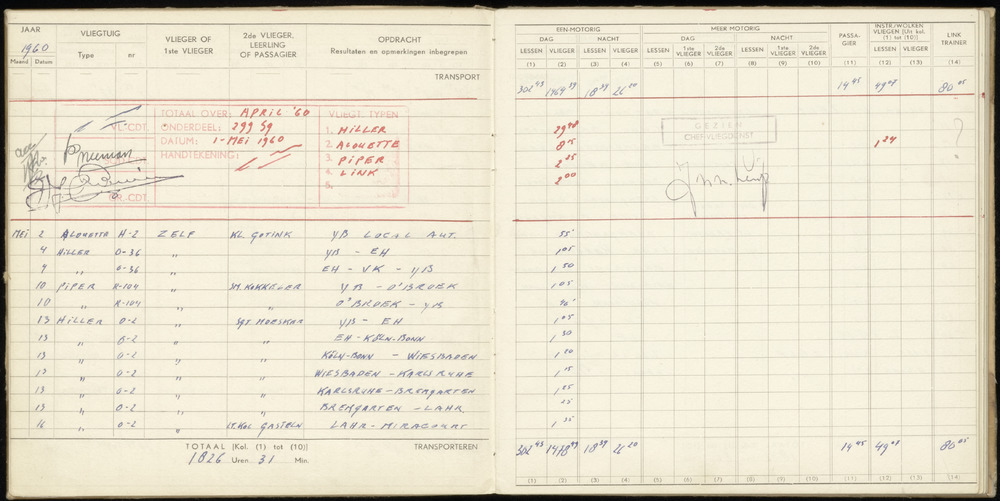 JAAR VLIEGTUIG VLIEGER OF 1ste VLIEGER 2de VLIEGER, LEERLING OF PASSAGIER OPDRACHT
1960 Type nr Resultaten en opmerkingen inbegrepen
Maand Datum
TRANSPORT
TOTAAL OVER: APRIL '60 VLIEGT. TYPEN
VL-CDT. ONDERDEEL: 299 Sq 1. HILLER
DATUM: 1-MEI 1960 2. ALOUETTE
HANDTEKENING: 3. PIPER
4. LINK
5.
MEI 2 ALOUETTE H-2 ZELF KL GOTINK YB LOCAL AUT.
4 HILLER O-36 " YB - EH
4 " O-36 " EH - VK - YB
10 PIPER R-104 " YB - O'BROEK
10 " R-104 " O'BROEK - YB
13 HILLER O-2 " SGT MOESKAR YB - EH
13 " O-2 " " EH - KÖLN-BONN
13 " O-2 " " KÖLN-BONN - WIESBADEN
13 " O-2 " " WIESBADEN - KARLSRUHE
13 " O-2 " " KARLSRUHE - BREMGARTEN
13 " O-2 " " BREMGARTEN - LAHR.
16 " O-2 LT. KOL GASTELN LAHR - MIRACOURT
TOTAAL [Kol. (1) tot (10)] TRANSPORTEREN
1826 Uren 31 Min.
EEN-MOTORIG MEER MOTORIG PASSA-GIER INSTR./WOLKEN VLIEGEN [Uit kol. (1) tot (10)] LINK TRAINER
DAG NACHT DAG NACHT
LESSEN VLIEGER LESSEN VLIEGER LESSEN 1ste VLIEGER 2de VLIEGER LESSEN 1ste VLIEGER 2de VLIEGER LESSEN VLIEGER
(1) (2) (3) (4) (5) (6) (7) (8) (9) (10) (11) (12) (13) (14)
302 43 18 39 26 20 14 45 49 08 80 05
GEZIEN
CHEF VLIEGDIENST
29 48
8 15 1 24
2 25
2 00
?
55
1 05
1 50
1 05
1 05
1 30
1 20
1 15
1 25
25
1 35
302 43 18 39 26 20 14 45 49 08 80 05
(1) (2) (3) (4) (5) (6) (7) (8) (9) (10) (11) (12) (13) (14)